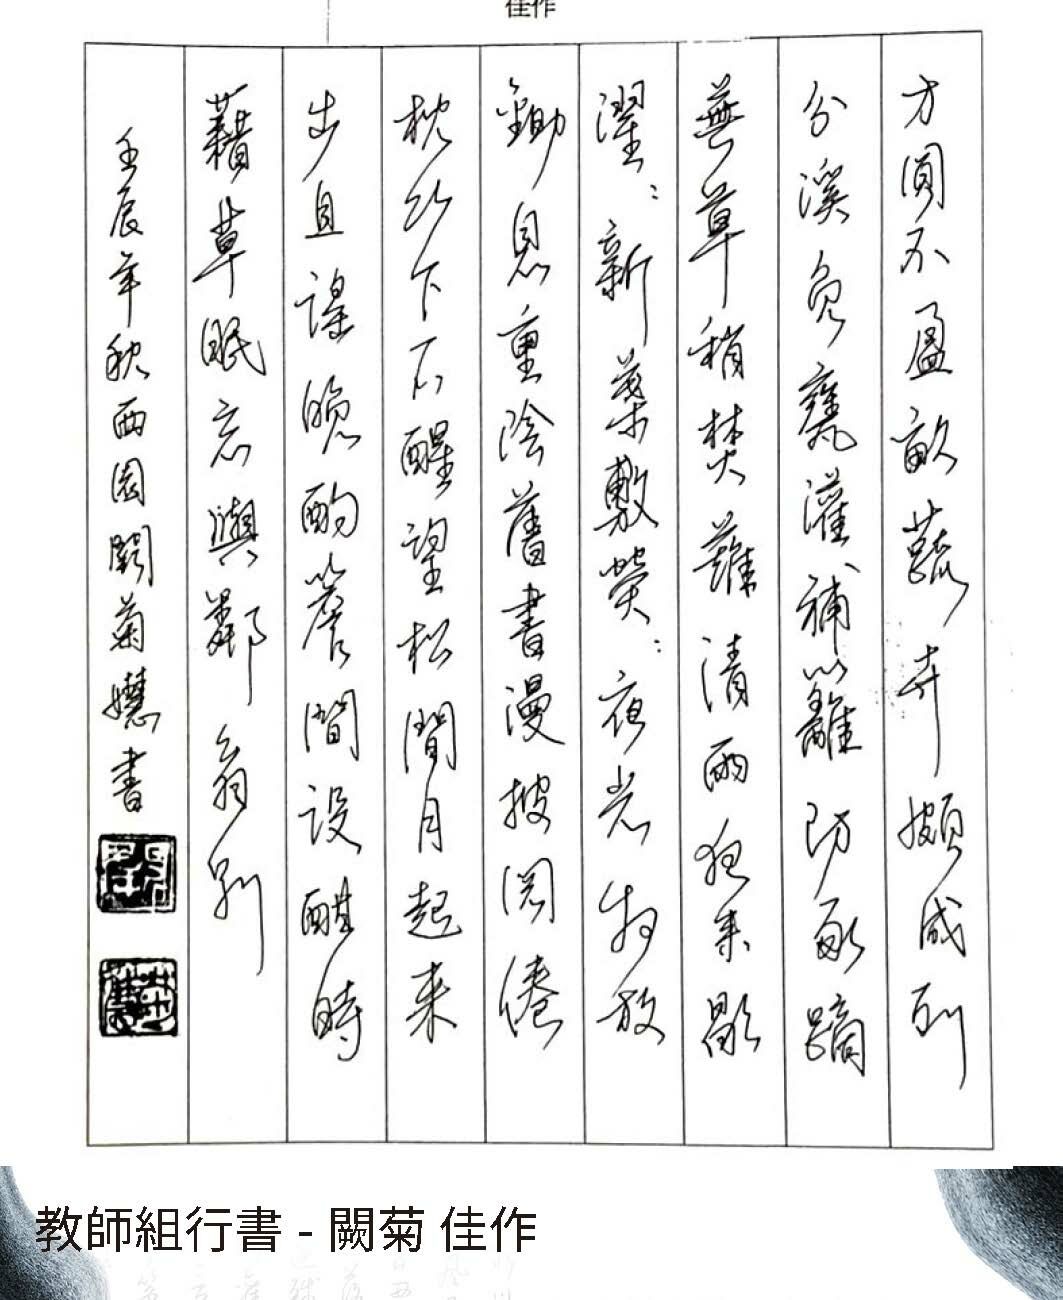 佳作
方圓不盈畝蔬卉頗成列
分溪負甕灌補籬防豕蹢
蕪草稍焚薙清雨夜來歇
濯濯新葉敷熒熒夜光物放
鋤息重陰舊書漫披閱倦
枕竹下石醒望松間月起來
步且謠晚酌簷間設酣時
藉草眠忘與鄰翁別
壬辰年秋西園闕菊嬨書
教師組行書 - 闕菊 佳作